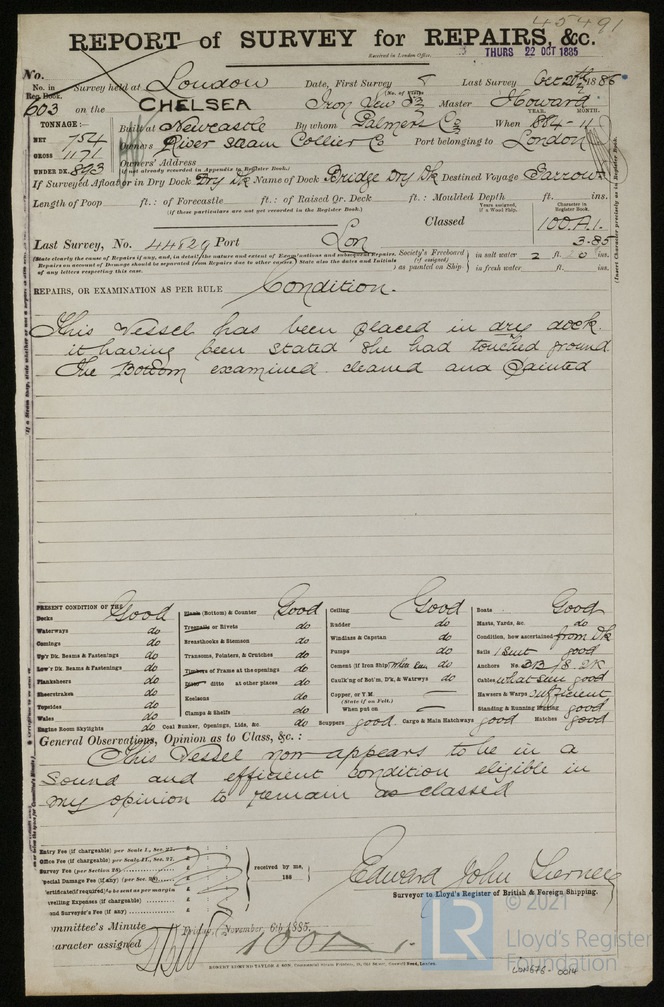 45491
REPORT of SURVEY for REPAIRS, &c.
Received in London Office, THURS 22 OCT 1885
No.
No. in Reg. Book. Survey held at London Date, First Survey Last Survey Oct 20th 1885
603 on the CHELSEA Iron Screw Master Howard
TONNAGE:- Built at Newcastle By whom Palmers Co When 1884-11
NET 754
GROSS 1171 Owners River Steam Collier Co Port belonging to London
UNDER DK. 893 Owners' Address
(if not already recorded in Appendix to Register Book.)
If Surveyed Afloat or in Dry Dock Dry Dk Name of Dock Bridge Dry Dk Destined Voyage Jarrow
Length of Poop ft.: of Forecastle ft.: of Raised Qr. Deck ft.: Moulded Depth ft. ins.
(if these particulars are not yet recorded in the Register Book.)
Classed 100.A.1.
3.85
Last Survey, No. 44829 Port Lon
(State clearly the cause of Repairs if any, and, in detail, the nature and extent of Examinations and subsequent Repairs.
Repairs on account of Damage should be separated from Repairs due to other causes.) State also the dates and Initials
of any letters respecting this case.
Society's Freeboard (if assigned) as painted on Ship- in salt water 2 ft. 0 ins.
in fresh water ft. ins.
REPAIRS, OR EXAMINATION AS PER RULE Condition.
This Vessel has been placed in dry dock.
it having been stated she had touched ground
The Bottom examined. cleaned and Painted
PRESENT CONDITION OF THE
Decks Good
Waterways do
Comings do
Up'r Dk. Beams & Fastenings do
Low'r Dk. Beams & Fastenings do
Planksheers do
Sheerstrakes do
Topsides do
Wales do
Engine Room Skylights do
Plank (Bottom) & Counter Good
Treenails or Rivets do
Breasthooks & Stemson do
Transoms, Pointers, & Crutches do
Timbers of Frame at the openings do
Ditto ditto at other places do
Keelsons do
Clamps & Shelfs do
Coal Bunker, Openings, Lids, &c. do
Ceiling Good
Rudder do
Windlass & Capstan do
Pumps do
Cement (if Iron Ship) when seen do
Caulk'g of Bot'm, D'k, & Watrwys do
Copper, or Y.M.
(State if on Felt.)
When put on
Scuppers good Cargo & Main Hatchways good Hatches good
Boats Good
Masts, Yards, &c. do
Condition, how ascertained from Dk
Sails 1 Suit good
Anchors No. 3B 1S. 2K
Cables what seen good
Hawsers & Warps sufficient
Standing & Running Rigging good
General Observations, Opinion as to Class, &c.:
This Vessel now appears to be in a
sound and efficient condition eligible in
my opinion to remain as classed
Entry Fee (if chargeable) per Scale I., Sec. 27. £
Office Fee (if chargeable) per Scale II., Sec. 27. £
Survey Fee (per Section 28) £
Special Damage Fee (if any) (per Sec. 28) £
Certificate (if required) to be sent as per margin £
Travelling Expenses (if chargeable) £
Second Surveyor's Fee (if any) £
received by me,
188
Edward John Tierney
Surveyor to Lloyd's Register of British & Foreign Shipping.
Committee's Minute Friday, November 6th 1885.
Character assigned 100A1.
ROBERT EDMUND TAYLOR & SON
LR
© 2021
Lloyd's Register
Foundation
LON676-0014